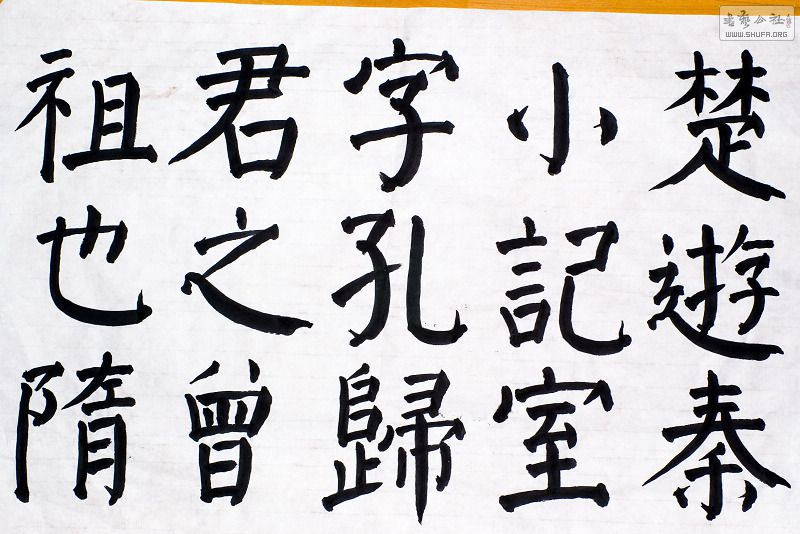 楚遊秦
小記室
字孔歸
君之曾
祖也隋
書藝公社
WWW.SHUFA.ORG